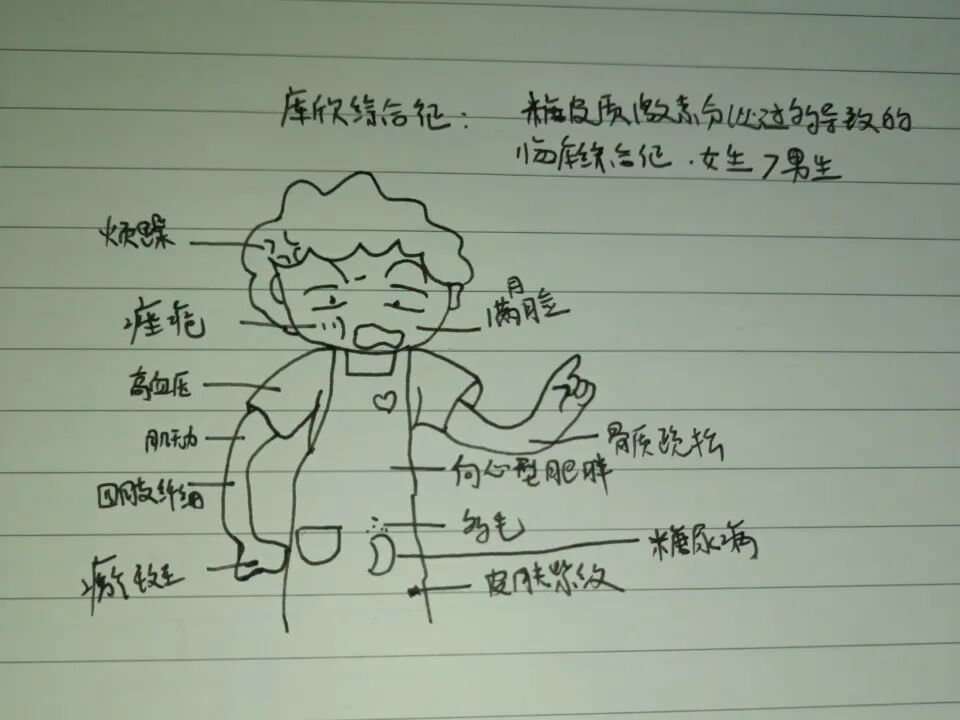 库欣综合征: 糖皮质激素分泌过多导致的
临床综合征.女生>男生
烦躁
痤疮
满月脸
高血压
肌无力
骨质疏松
向心型肥胖
四肢纤细
多毛
糖尿病
皮肤紫纹